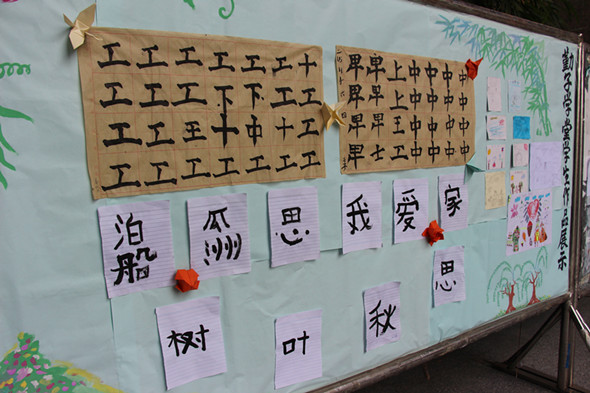 工工工工工工十
工工工下下工工
工工王十中十工
工工工工工工工
早早上中中中中
早早上中中中中
早早王中中中中
早士工中中中中
泊船
瓜洲
思
我
爱
家
树
叶
秋
思
勤子学堂学生作品展示